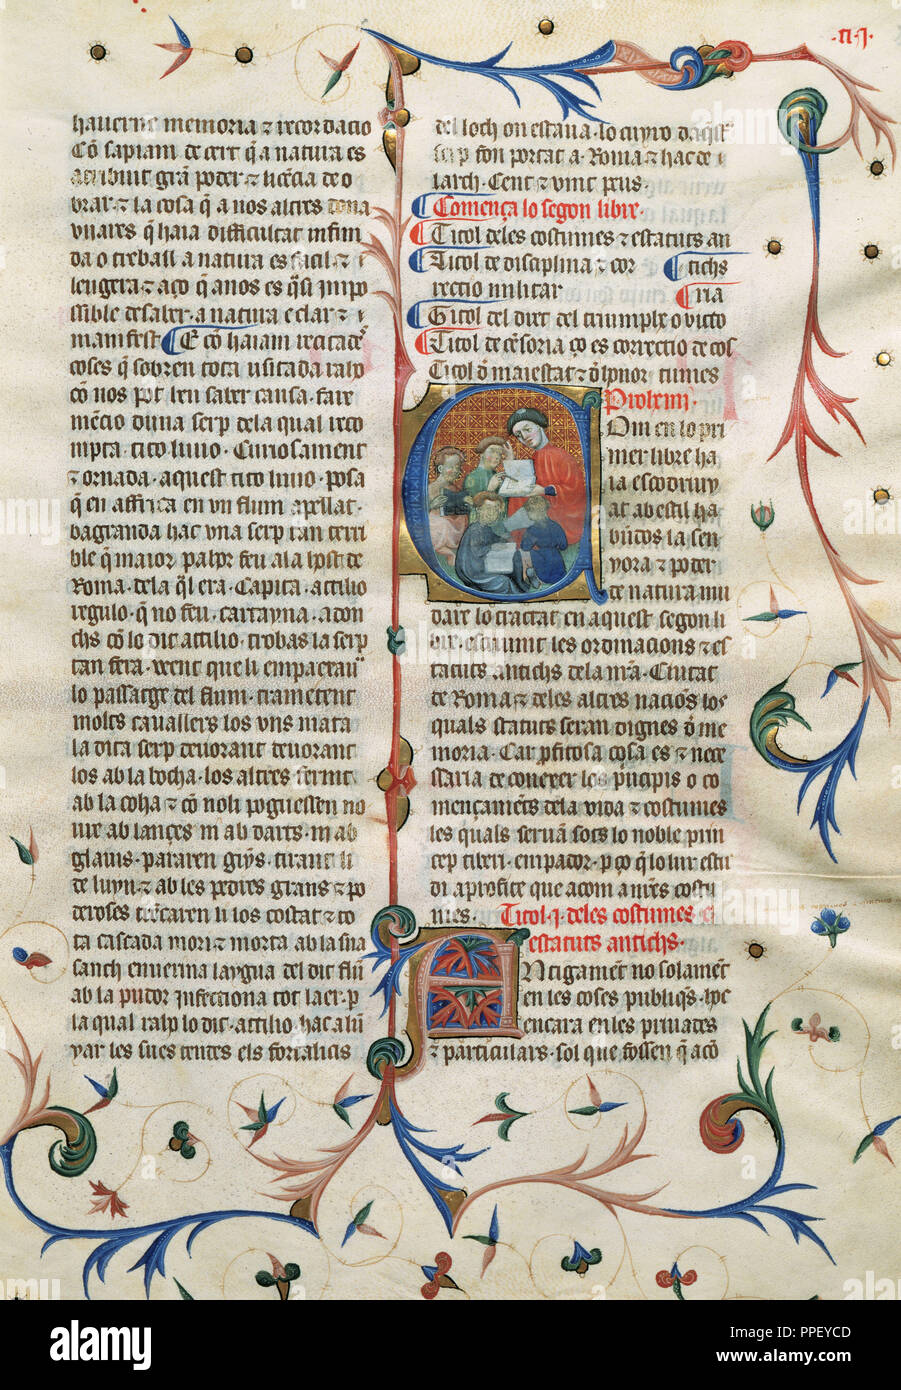 ·II·I·
hauem e memoria ⁊ recordacio
Cō sapiam de cert q̄ a natura es
atribuit grā poder ⁊ licēcia de o
brar ⁊ la cosa q̄ a nos altres dona
viiares q̄ haia difficultat infini
da o treball a natura es facil ⁊ i
leugera ⁊ aço q̄ a nos es q̄si impo
ssible de saber · a natura e clar ⁊ i
manifest · ¶ E cō haiam recitades
coses q̄ sobren tota usitada raho
cō nos pot leu saber causa · fare
mēcio duna serp de la qual reco
mpta · tito liuio · Curiosament
⁊ ornada · aquest tito liuio · posa
q̄ en affrica en vn flum apellat ·
bagranda hac vna serp tan terri
ble q̄ maior pahor feu a la host de
Roma · de la q̄l era · Capita · attilio
regulo · q̄ no feu · cartayna · a don
chs cō lo dit attilio · trobas la serp
tan fera · vent que li empatxaua
lo passatge del flum · trametent
molts cauallers los vns mata
la dita serp deuorant deuorant
los ab la bocha · los altres ferint
ab la coha ⁊ cō noli poguessen no
ure ab lançes ni ab darts · ni ab
glauis · pararen giys · tirant li
de luyn ⁊ ab les pedres grans ⁊ po
deroses trēcaren li los costat ⁊ to
ta cascada mori ⁊ morta ab la sua
sanch enuerina laygua del dit flū
ab la pudor infectiona tot laer · p
la qual raho lo dit · attilio · hac a lū
yar les sues tendes els fortalicis
del loch on estaua · lo cuyro daq̄lla
serp fon portat a · Roma ⁊ hac de i
larch · Cent ⁊ vint peus ·
¶ Comença lo segon libre ·
¶ Titol de les costumes ⁊ estatuts an
¶ Titol de disciplina ⁊ cor ¶ tichs
rectio militar ¶ ria
¶ Titol del dret del triumphe o victo
¶ Titol de cēsoria ço es correctio de cos
Titol d̄ maiestat ⁊ d̄ honor tumes
Prolemi ·
Com en lo pri
mer libre ha
ia escodriny
at ab estil ha
būdos la sen
yora ⁊ poder
de natura mu
dare lo tractat en aquest segon li
bre · escriuint les ordinacions ⁊ es
tatuts antichs de la mīa · Ciutat
de Roma ⁊ de les altres naciōs los
quals statuts seran dignes d̄ me
moria · Car p̄fitosa cosa es ⁊ nece
ssaria de conexer les p̄ncipis o co
mençamēts de la vida ⁊ costumes
les quals seruān sots lo noble prin
cep tiberi · empador · p ço q̄ lo lur estu
di aprofite que acom a nr̄es costu
mes · Titol · j · de les costumes e
estatuts antichs ·
Antigament no solamēt
en les coses publiq̄s · hoc
encara en les priuades
⁊ particulars · sol que fossen q̄ acō
alamy
Image ID: PPEYCD
www.alamy.com